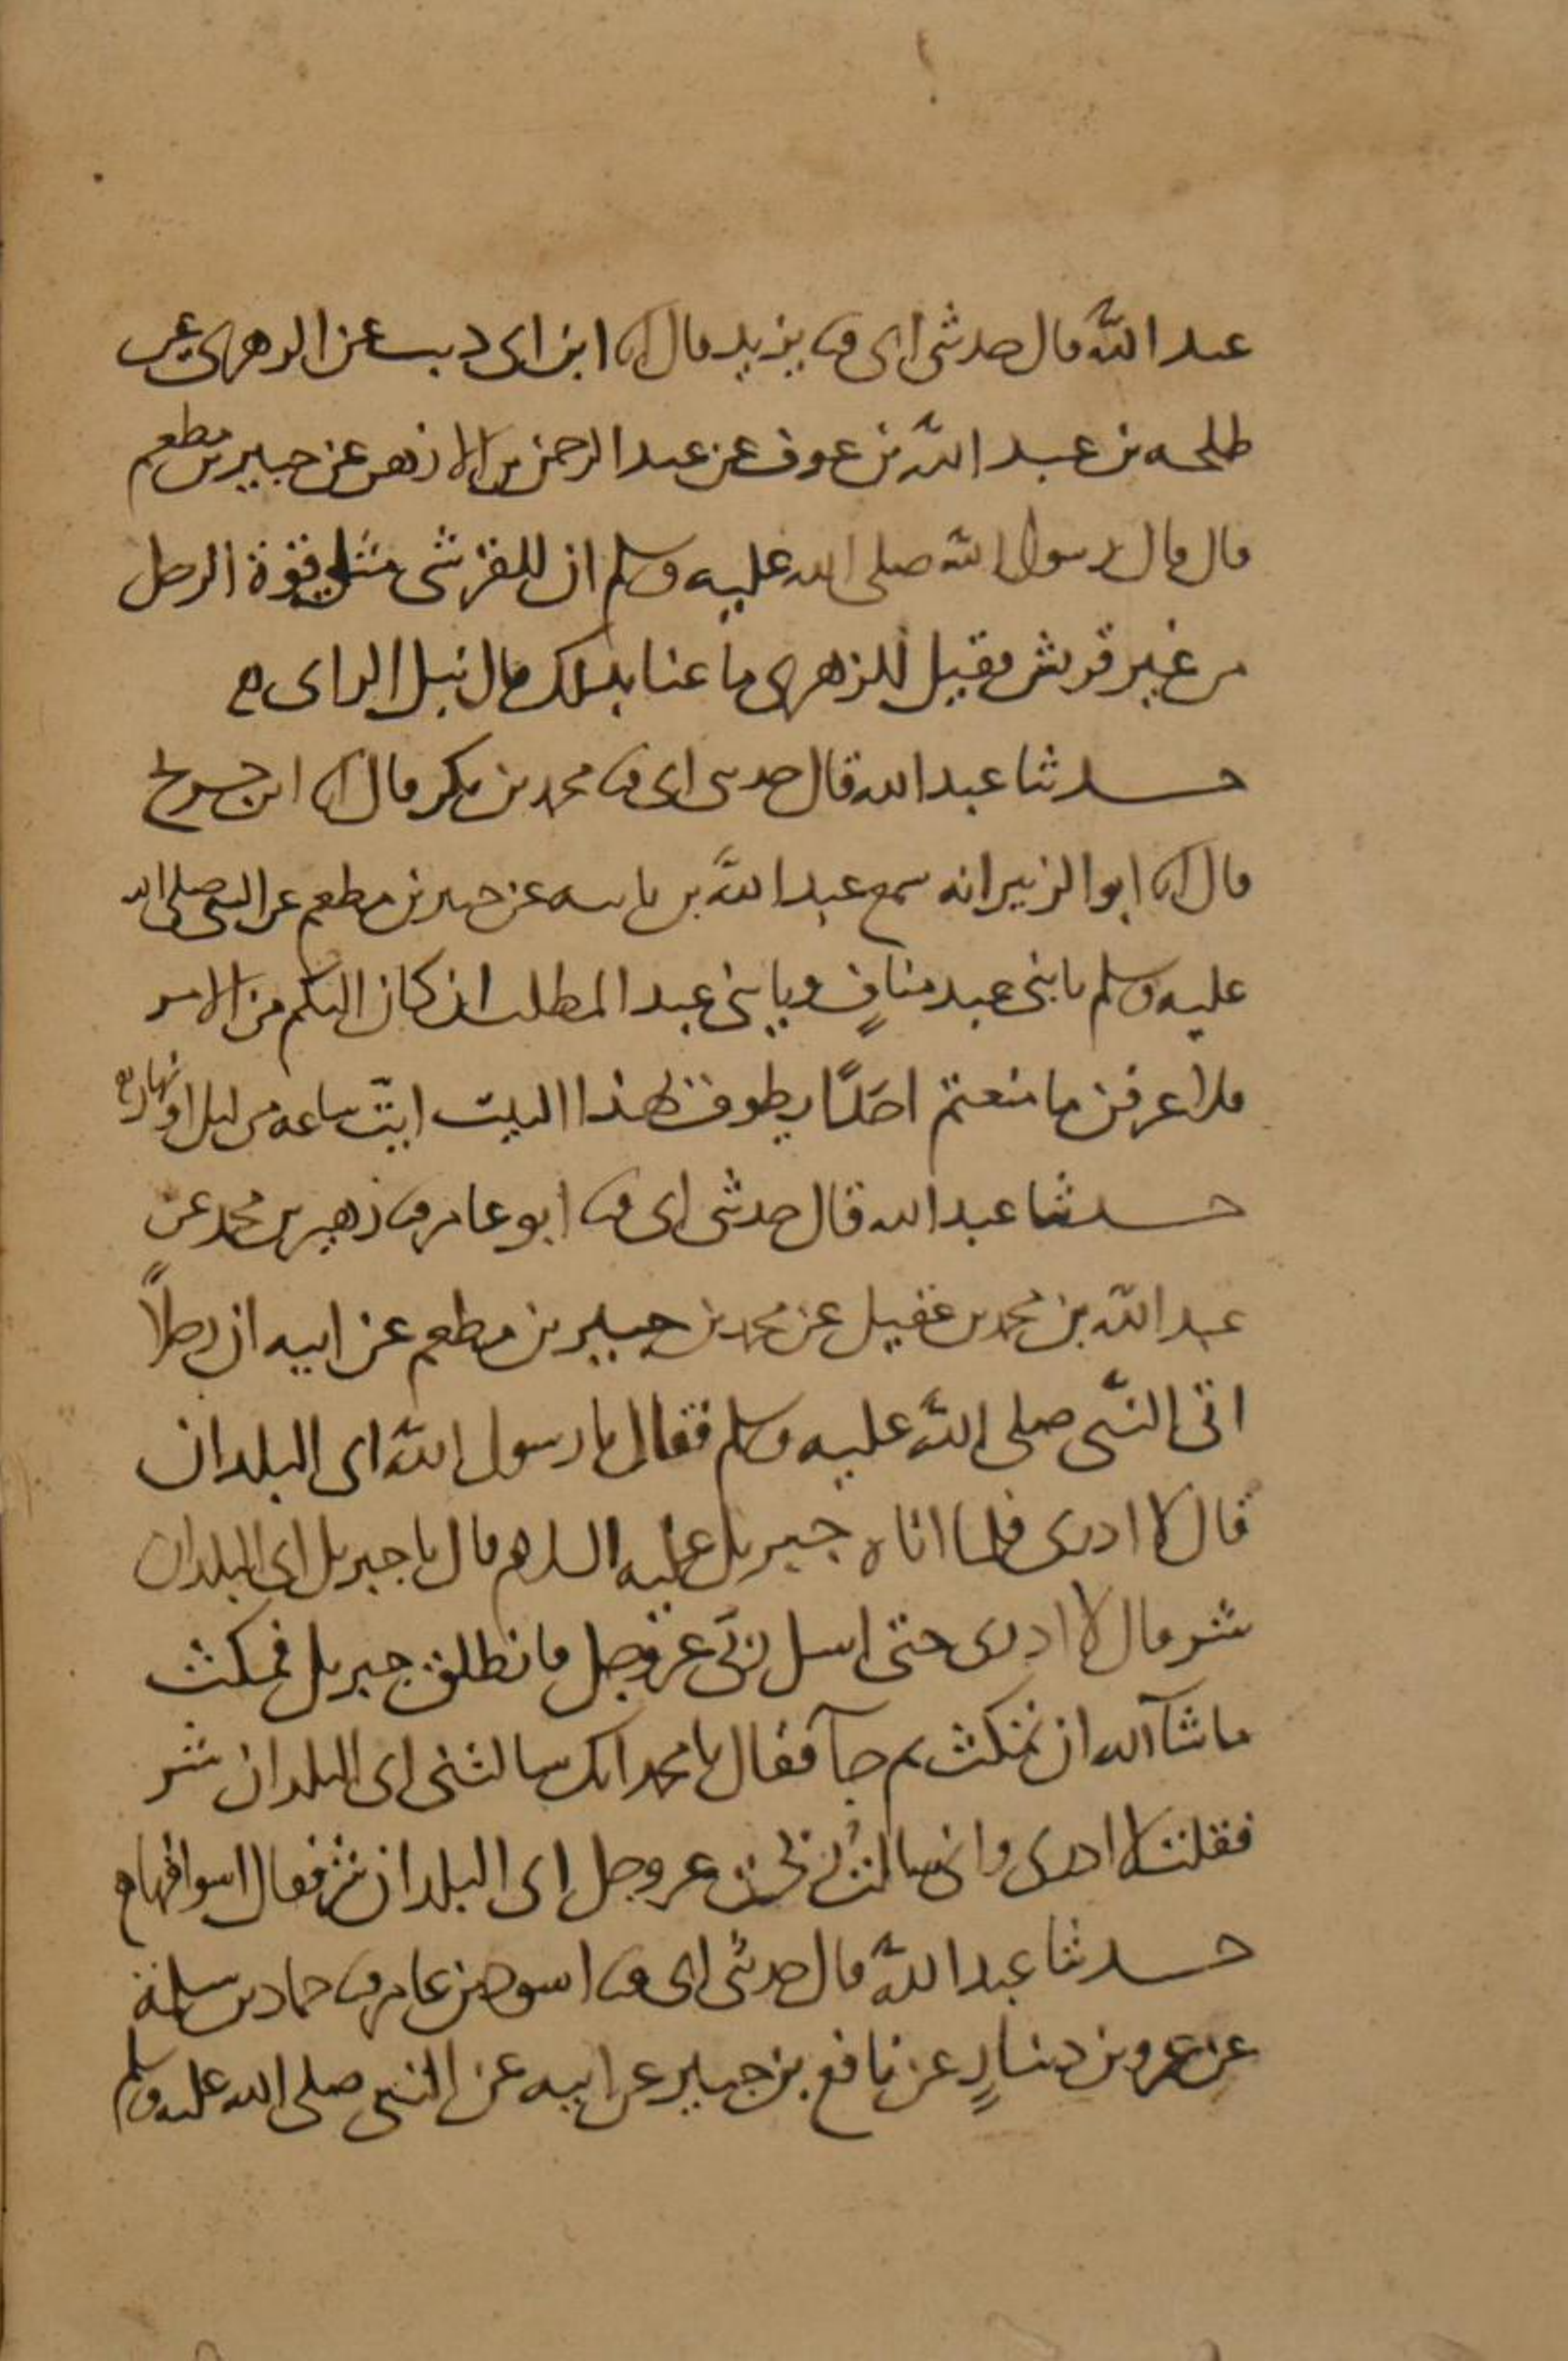 عبد الله قال حدثني ابي ثنا يزيد قال انا ابن ابي ذيب عن الزهري عن
طلحه بن عبد الله بن عوف عن عبد الرحمن بن الازهر عن جبير بن مطعم
قال قال رسول الله صلى الله عليه وسلم ان للقرشي مثلي قوة الرجل
من غير قريش فقيل للزهري ما عنا بذلك قال نبل الراي ه
حدثنا عبد الله قال حدثني ابي ثنا محمد بن بكر قال انا ابن جريج
قال انا ابو الزبير انه سمع عبد الله بن باباه عن جبير بن مطعم عن النبي صلى الله
عليه وسلم يا بني عبد منافٍ ويا بني عبد المطلب ان كان اليكم من الامر
فلا اعرفن ما منعتم احدًا يطوف بهذا البيت ايّت ساعه من ليل او نهار ه
حدثنا عبد الله قال حدثني ابي ثنا ابو عامر ثنا زهير بن محمد عن
عبد الله بن محمد بن عقيل عن محمد بن جبير بن مطعم عن ابيه ان رجلاً
اتى النبّي صلى الله عليه وسلم فقال يا رسول الله اي البلدان
قال لا ادري فلما اتاه جبريل عليه السلام قال يا جبريل اي البلدان
شر قال لا ادري حتى اسل ربّي عز وجل فانطلق جبريل فمكث
ما شآ الله ان يمكث ثم جآ فقال يا محمد انك سالتني اي البلدان شر
فقلت لا ادري واني سالت ربي عز وجل اي البلدان شر فقال اسواقها ه
حدثنا عبد الله قال حدثني ابي ثنا اسود بن عامر ثنا حماد بن سلمة
عن عمرو بن دينارٍ عن نافع بن جبير عن ابيه عن النبي صلى الله عليه وسلم